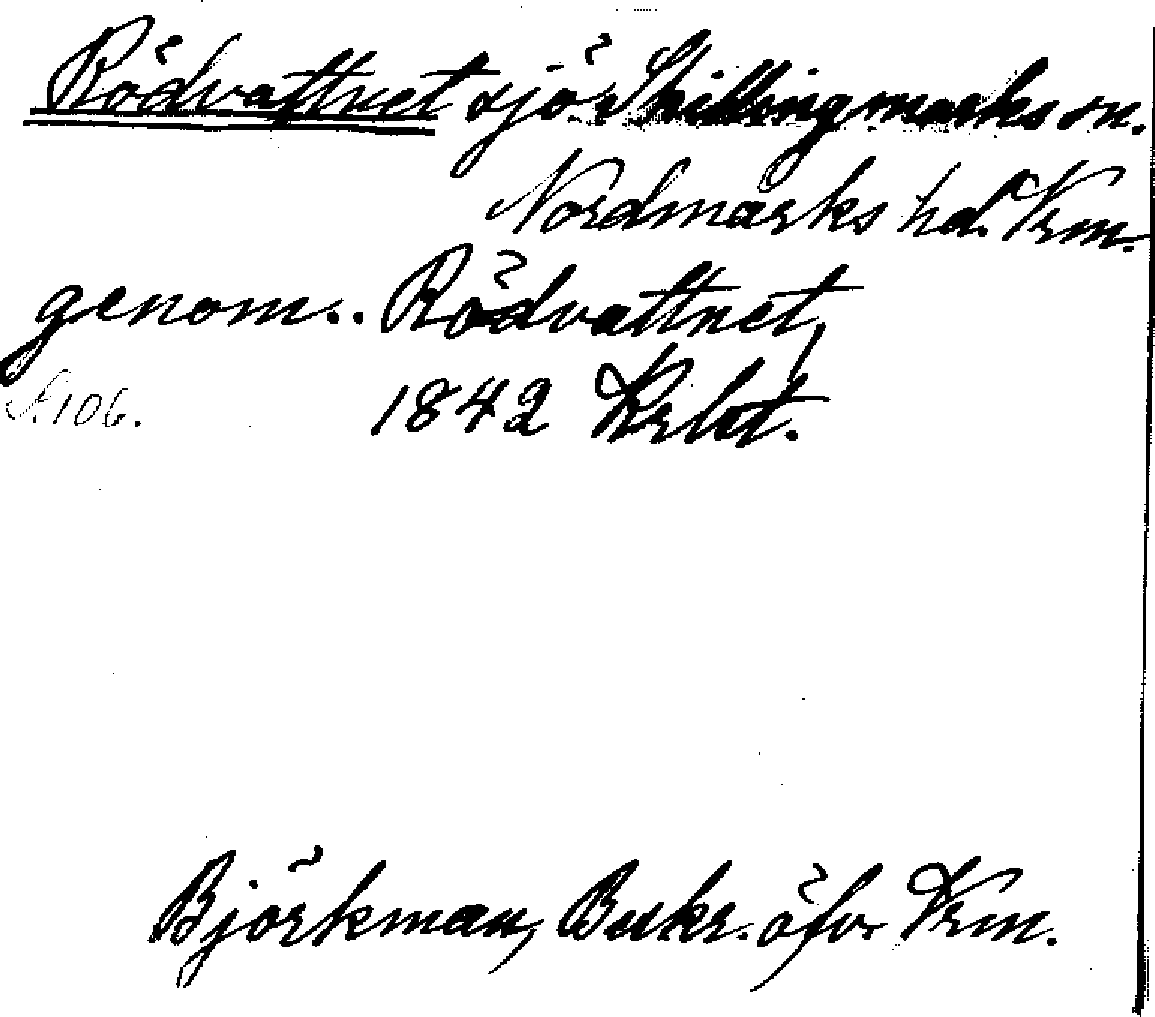 Rödvattnet sjö Skillingmarks sn.
Nordmarks hd. Vrm.
genom.. Rödvattnet,
s. 106. 1842 Krbt.
Björkman, Beskr. öfv. Vrm.